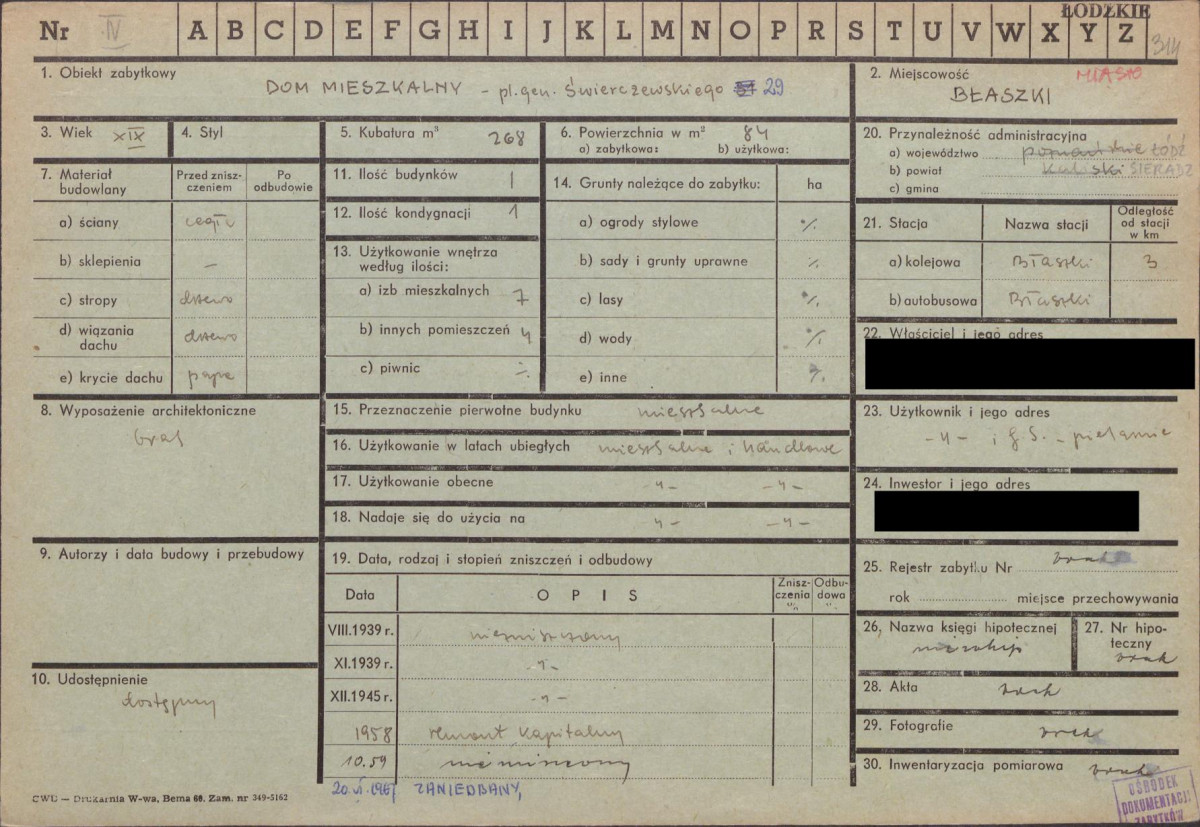 Nr IV A B C D E F G H I J K L M N O P R S T U V W X Y Z
ŁÓDZKIE
314
1. Obiekt zabytkowy
DOM MIESZKALNY – pl. gen. Świerczewskiego 29
2. Miejscowość
MIASTO
BŁASZKI
3. Wiek XIX
4. Styl
5. Kubatura m³ 268
6. Powierzchnia w m² 84
a) zabytkowa: b) użytkowa:
7. Materiał budowlany
Przed zniszczeniem
Po odbudowie
a) ściany cegła
b) sklepienia –
c) stropy drzewo
d) wiązania dachu drzewo
e) krycie dachu papa
8. Wyposażenie architektoniczne
brak
9. Autorzy i data budowy i przebudowy
10. Udostępnienie
dostępny
11. Ilość budynków 1
12. Ilość kondygnacji 1
13. Użytkowanie wnętrza
według ilości:
a) izb mieszkalnych 7
b) innych pomieszczeń 4
c) piwnic ÷
14. Grunty należące do zabytku: ha
a) ogrody stylowe %
b) sady i grunty uprawne %
c) lasy %
d) wody %
e) inne %
15. Przeznaczenie pierwotne budynku mieszkalne
16. Użytkowanie w latach ubiegłych mieszkalne i handlowe
17. Użytkowanie obecne -"- -"-
18. Nadaje się do użycia na -"- -"-
19. Data, rodzaj i stopień zniszczeń i odbudowy
Data
O P I S
Zniszczenia "/"
Odbudowa "/"
VIII.1939 r. niezniszczony
XI.1939 r. -"-
XII.1945 r. -"-
1958 remont kapitalny
10.59
20.VI.1967 ZANIEDBANY,
20. Przynależność administracyjna
a) województwo poznańskie ŁÓDŹ
b) powiat kaliski SIERADZ
c) gmina
21. Stacja
Nazwa stacji
Odległość od stacji w km
a) kolejowa Błaszki 3
b) autobusowa Błaszki
22. Właściciel i jego adres
23. Użytkownik i jego adres
-"- i G.S. – piekarnie
24. Inwestor i jego adres
25. Rejestr zabytku Nr brak
rok miejsce przechowywania
26. Nazwa księgi hipotecznej
27. Nr hipoteczny
brak
28. Akta brak
29. Fotografie brak
30. Inwentaryzacja pomiarowa brak
CWD — Drukarnia W-wa, Bema 60. Zam. nr 349-5162
OŚRODEK
DOKUMENTACJI
ZABYTKÓW